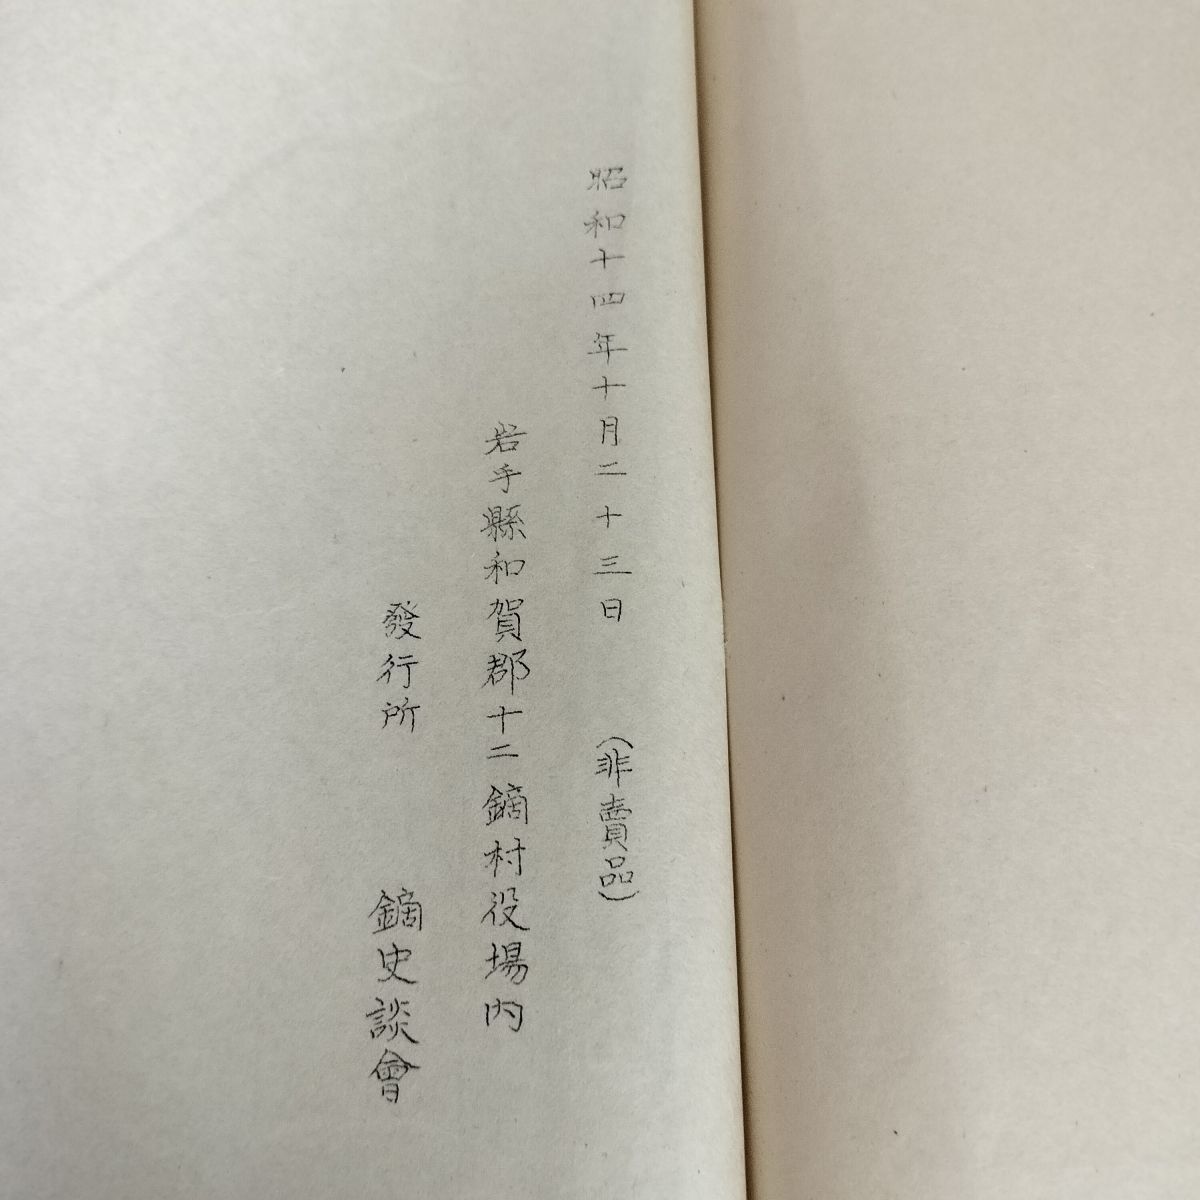 昭和十四年十月二十三日 (非賣品)
岩手縣和賀郡十二鏑村役場内
發行所 鏑史談會